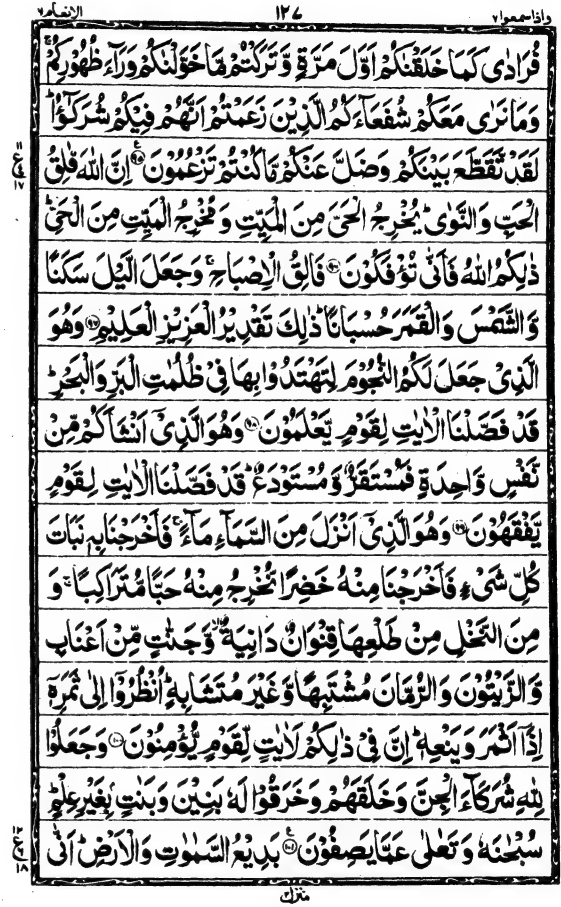 واذاسمعوا۷ ۱۲۷ الانعام۶
فُرَادٰى كَمَا خَلَقْنٰكُمْ اَوَّلَ مَرَّةٍ وَّتَرَكْتُمْ مَّا خَوَّلْنٰكُمْ وَرَآءَ ظُهُوْرِكُمْ ۚ
وَمَا نَرٰى مَعَكُمْ شُفَعَآءَكُمُ الَّذِيْنَ زَعَمْتُمْ اَنَّهُمْ فِيْكُمْ شُرَكٰٓؤُا ؕ
لَقَدْ تَّقَطَّعَ بَيْنَكُمْ وَضَلَّ عَنْكُمْ مَّا كُنْتُمْ تَزْعُمُوْنَ ۹۵ اِنَّ اللّٰهَ فٰلِقُ
الْحَبِّ وَالنَّوٰى ؕ يُخْرِجُ الْحَيَّ مِنَ الْمَيِّتِ وَمُخْرِجُ الْمَيِّتِ مِنَ الْحَيِّ ؕ
ذٰلِكُمُ اللّٰهُ فَاَنّٰى تُؤْفَكُوْنَ ۹۶ فَالِقُ الْاِصْبَاحِ ۚ وَجَعَلَ الَّيْلَ سَكَنًا
وَّالشَّمْسَ وَالْقَمَرَ حُسْبَانًا ؕ ذٰلِكَ تَقْدِيْرُ الْعَزِيْزِ الْعَلِيْمِ ۹۷ وَهُوَ
الَّذِيْ جَعَلَ لَكُمُ النُّجُوْمَ لِتَهْتَدُوْا بِهَا فِيْ ظُلُمٰتِ الْبَرِّ وَالْبَحْرِ ؕ
قَدْ فَصَّلْنَا الْاٰيٰتِ لِقَوْمٍ يَّعْلَمُوْنَ ۹۸ وَهُوَ الَّذِيْٓ اَنْشَاَكُمْ مِّنْ
نَّفْسٍ وَّاحِدَةٍ فَمُسْتَقَرٌّ وَّمُسْتَوْدَعٌ ؕ قَدْ فَصَّلْنَا الْاٰيٰتِ لِقَوْمٍ
يَّفْقَهُوْنَ ۹۹ وَهُوَ الَّذِيْٓ اَنْزَلَ مِنَ السَّمَآءِ مَآءً ۚ فَاَخْرَجْنَا بِهٖ نَبَاتَ
كُلِّ شَيْءٍ فَاَخْرَجْنَا مِنْهُ خَضِرًا نُّخْرِجُ مِنْهُ حَبًّا مُّتَرَاكِبًا ۚ وَ
مِنَ النَّخْلِ مِنْ طَلْعِهَا قِنْوَانٌ دَانِيَةٌ ۙ وَّجَنّٰتٍ مِّنْ اَعْنَابٍ
وَّالزَّيْتُوْنَ وَالرُّمَّانَ مُشْتَبِهًا وَّغَيْرَ مُتَشَابِهٍ ؕ اُنْظُرُوْٓا اِلٰى ثَمَرِهٖٓ
اِذَآ اَثْمَرَ وَيَنْعِهٖ ؕ اِنَّ فِيْ ذٰلِكُمْ لَاٰيٰتٍ لِّقَوْمٍ يُّؤْمِنُوْنَ ۱۰۰ وَجَعَلُوْا
لِلّٰهِ شُرَكَآءَ الْجِنَّ وَخَلَقَهُمْ وَخَرَقُوْا لَهٗ بَنِيْنَ وَبَنٰتٍۢ بِغَيْرِ عِلْمٍ ؕ
سُبْحٰنَهٗ وَتَعٰلٰى عَمَّا يَصِفُوْنَ ۱۰۱ بَدِيْعُ السَّمٰوٰتِ وَالْاَرْضِ ؕ اَنّٰى
۱۱
ع
۱۷
۱۲
ع
۱۸
منزل۲